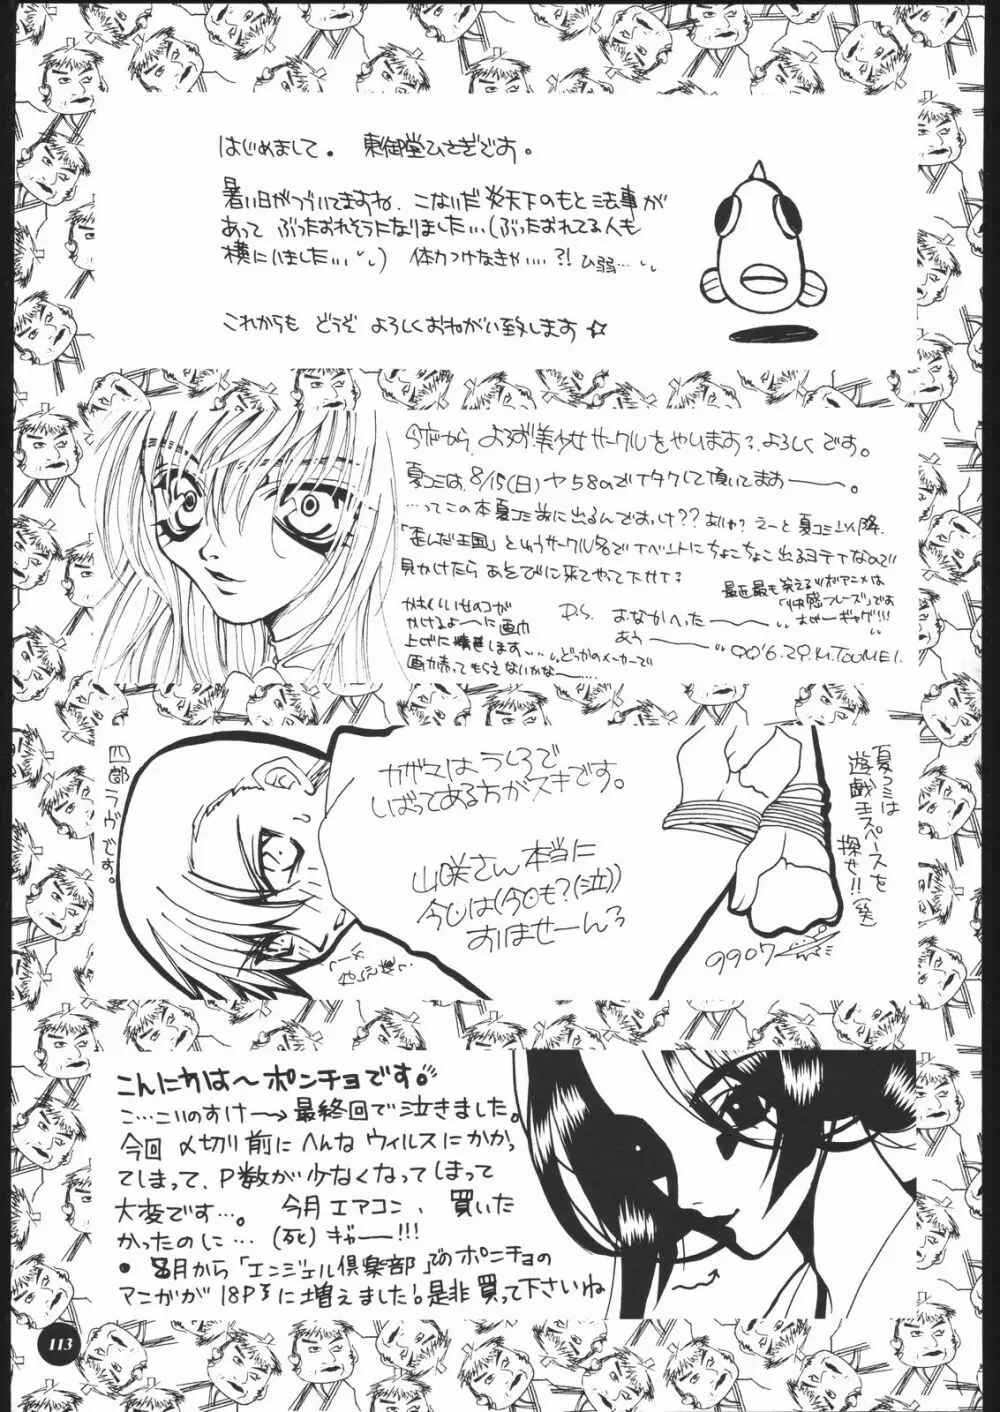 はじめまして。 東御堂ひさぎです。
暑い日がつづいてますね、こないだ炎天下のもと法事が
あって ぶったおれそうになりました…(ぶったおれてる人も
横にいました…) 体力つけなきゃ…?! ひ弱…
これからも どうぞ よろしくおねがい致します☆
今夜から、よろず美少女サークルをやります?よろしくです。
夏コミは、8/15(日) ヤ58aでイタクして頂いてますーー。
…ってこの本夏コミ前に出るんですっけ??ありゃ?えーと夏コミ以降、
「歪んだ王国」というサークル名でイベントにちょこちょこ出るヨテイなので
見かけたら あそびに来てやって下サイ?
最近最も笑えるツボアニメは
「快感フレーズ」です
かわいい女のコが
かけるよーに画力
上げに精進します…
どっかのメーカーで
画力売ってもらえないかなー…
P.S. おなかへったーー
あうーー
99'6.29.M.TOOMEI.
四郎ラヴです。
カガミはうしろで
しばってある方がスキです。
山咲さん本当に
今回は(今回も?(泣))
すいませーん
夏コミは
遊戯王スペースを
探せ!!(笑)
9907
こんにちは〜ポンチョです。
こ…こいのすけー→最終回で泣きました。
今回〆切り前にへんなウィルスにかかっ
てしまって、P数が少なくなってしまって
大変です…。 今月エアコン、買いた
かったのに…(死)ギャー!!!
●8月から「エンジェル倶楽部」でのポンチョの
マンガが18Pに増えました!是非買って下さいね
113